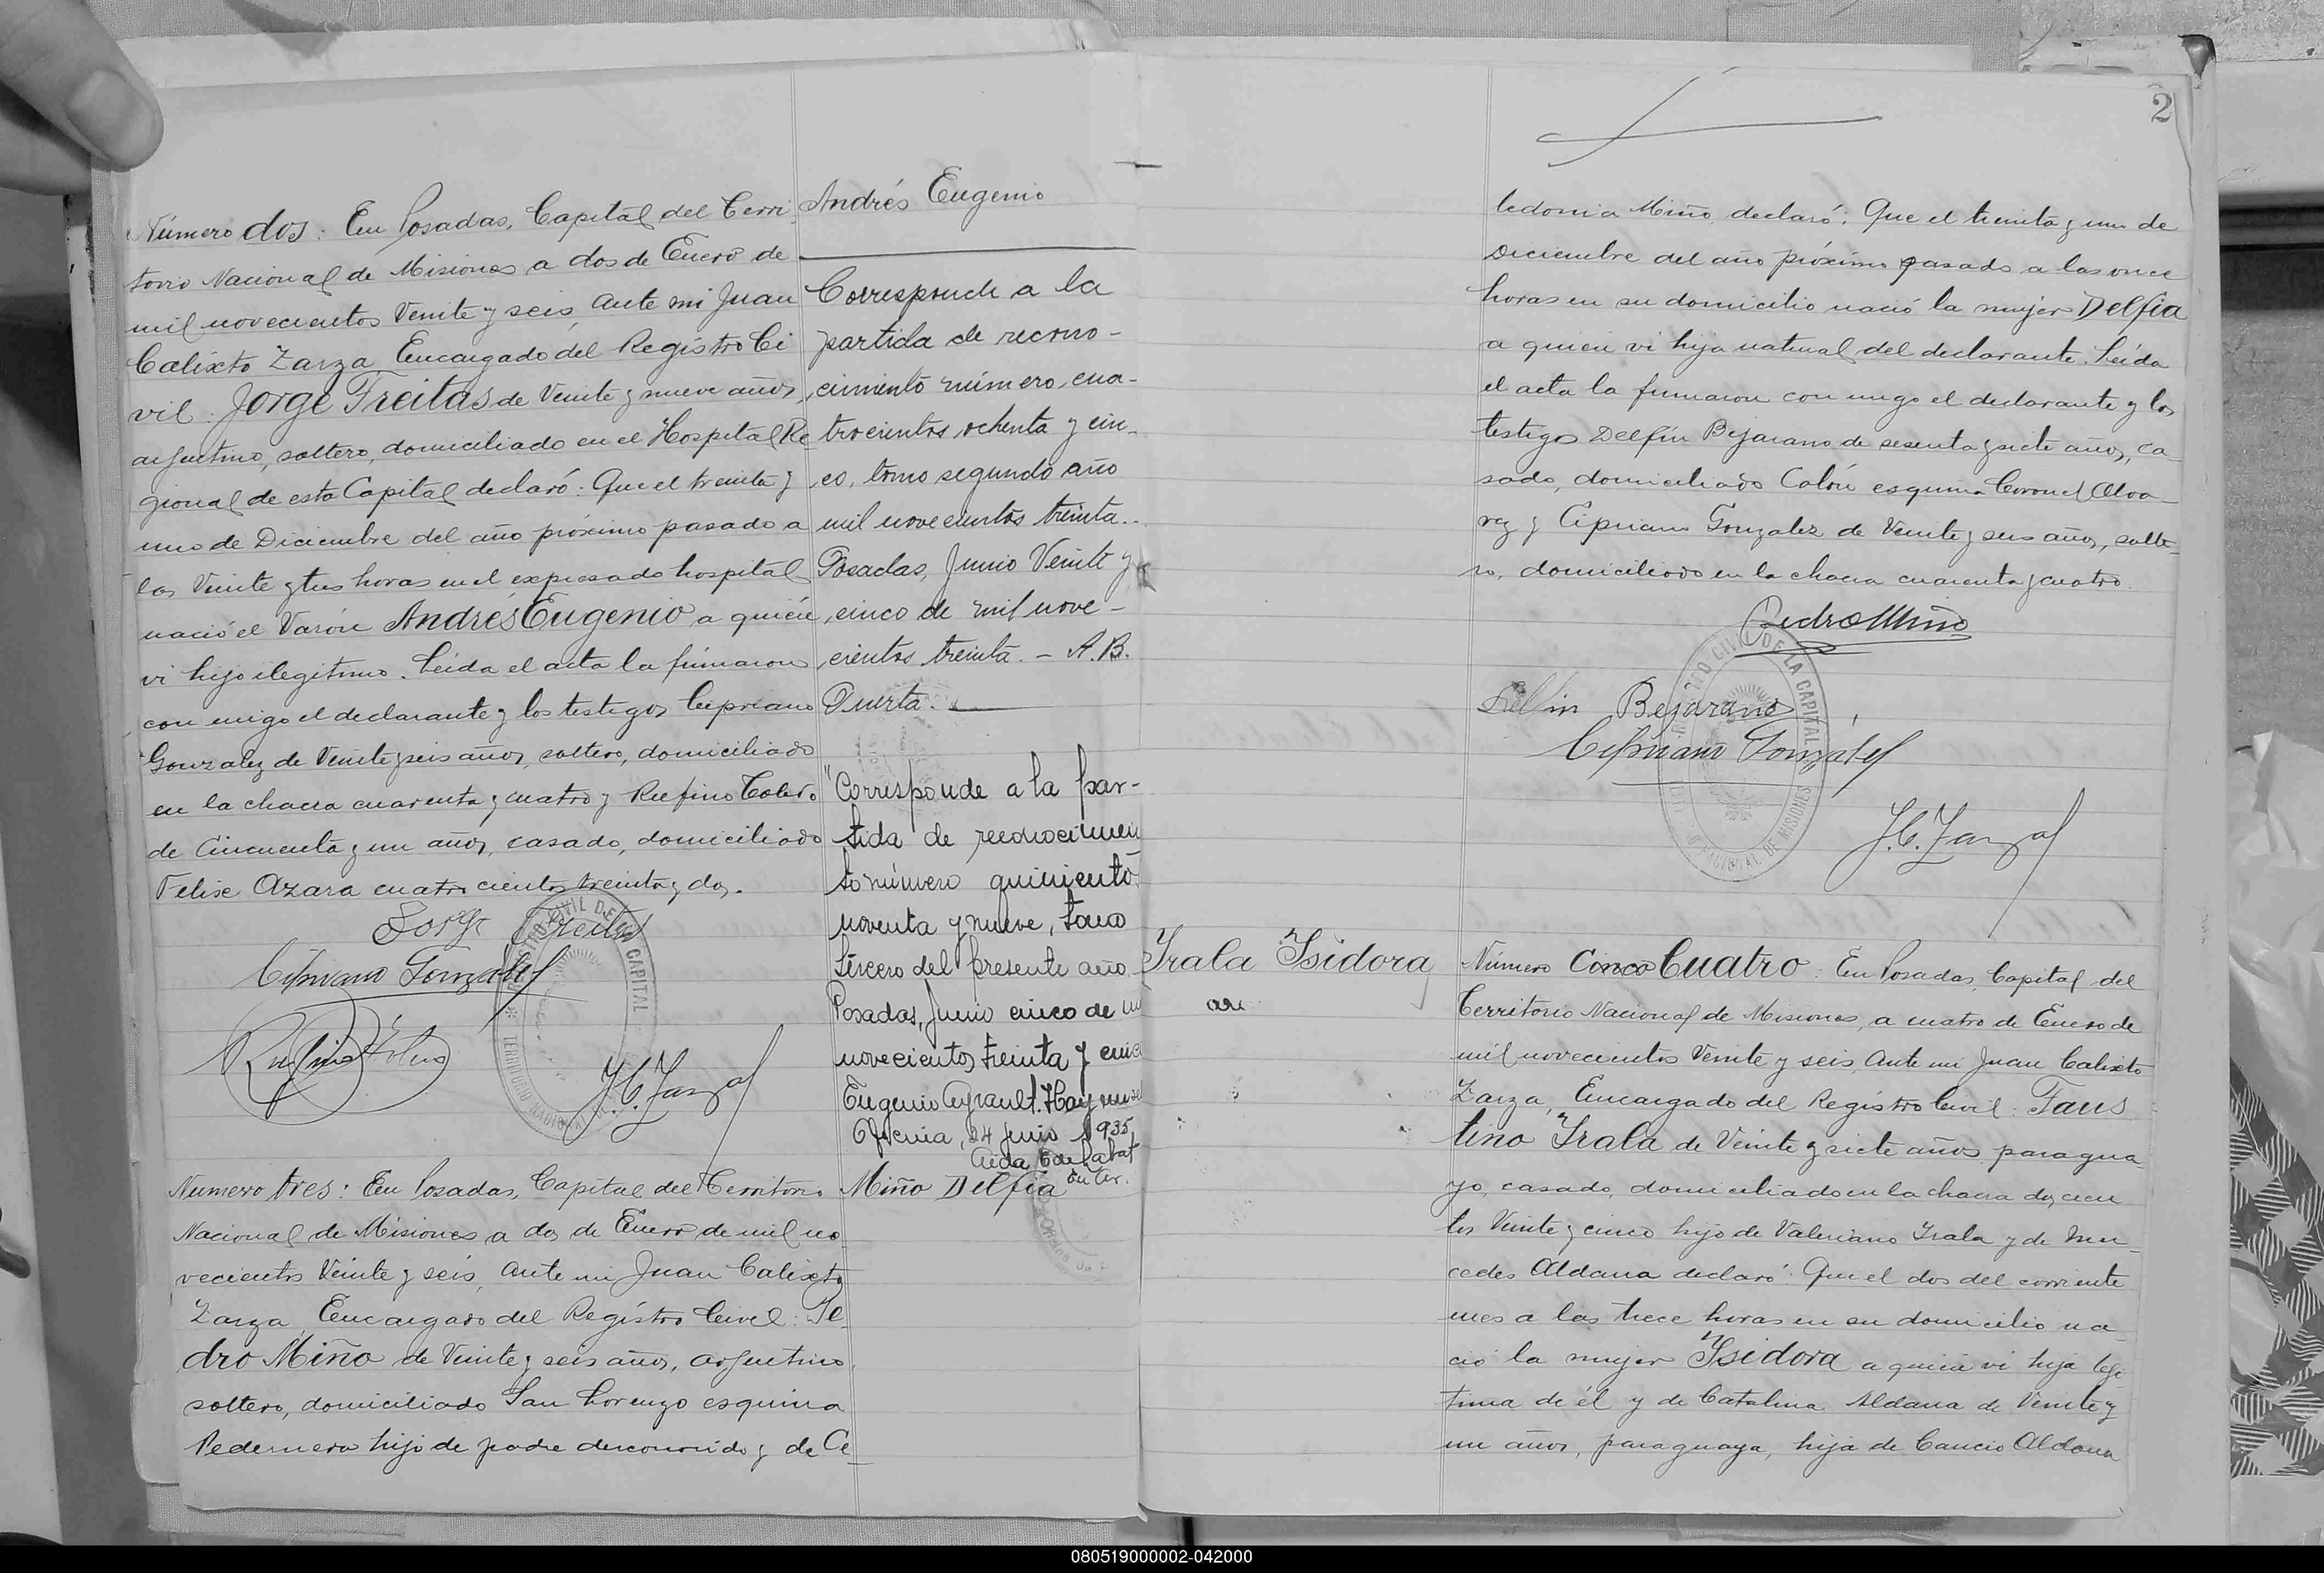 Número dos: En Posadas, Capital del Terri-
torio Nacional de Misiones a dos de Enero de
mil novecientos Veinte y seis, ante mi Juan
Calixto Zarza, Encargado del Registro Ci
vil: Jorge Freitas de Veinte y nueve años,
argentino, soltero, domiciliado en el Hospital Re-
gional de esta Capital declaró: Que el treinta y
uno de Diciembre del año próximo pasado a
las Veinte y tres horas en el expresado hospital
nació el Varón Andrés Eugenio a quién
vi hijo ilegitimo. Leída el acta la firmaron
con migo el declarante y los testigos Cipriano
Gonzalez de Veinte y seis años, soltero, domiciliado
en la chacra cuarenta y cuatro y Rufino
de Cincuenta y un años, casado, domiciliado
Felix Azara cuatrocientos treinta y dos.
Jorge Freitas
Cipriano González
J.C. Zarza
Numero tres: En Posadas, Capital del Territorio
Nacional de Misiones a dos de Enero de mil no
vecientos Veinte y seis, ante mi Juan Calixto
Zarza, Encargado del Registro Civil: Pe-
dro Miño de Veinte y seis años, argentino,
soltero, domiciliado San Lorenzo esquina
Pedernera hijo de padre desconocido y de Ce-
Andrés Eugenio
Corresponde a la
partida de recono-
cimiento número cua-
trocientos ochenta y cin-
co, tomo segundo año
mil novecientos treinta..
Posadas, Junio Veinte y
cinco de mil nove-
cientos treinta. - A. B.
Duerta.
"Corresponde a la par-
tida de reconocimien
to número quiniento
noventa y nueve, tomo
tercero del presente año
Posadas, Junio cinco de
novecientos treinta y cinc
Eugenio Hay un
Oficina, 24 Junio 1935
Aida
Miño Delfia
2
ledonia Miño, declaró: Que el treinta y uno de
Diciembre del año próximo pasado a las once
horas en su domicilio nació la mujer Delfia
a quien vi hija natural del declarante. Leída
el acta la firmaron con migo el declarante y los
testigos Delfín Bejarano de sesenta y siete años, ca
sado, domiciliado Colón esquina Coronel Alva
rez y Cipriano Gonzalez de Veinte y seis años, solte-
ro, domiciliado en la chacra cuarenta y cuatro.
Pedro Miño
Delfin Bejarano
Cipriano González
J.C. Zarza
REGISTRO CIVIL DE LA CAPITAL
TERRITORIO NACIONAL DE MISIONES
Irala Isidora
Número Cinco Cuatro: En Posadas, Capital del
Territorio Nacional de Misiones, a cuatro de Enero de
mil novecientos Veinte y seis, ante mi Juan Calixto
Zarza, Encargado del Registro Civil: Faus
tino Irala de Veinte y siete años, paragua
yo, casado, domiciliado en la chacra dos cien
tos Veinte y cinco hijo de Valeriano Irala y de Mer-
cedes Aldana declaró: Que el dos del corriente
mes a las trece horas en su domicilio na
ció la mujer Isidora a quien vi hija legi
tima de él y de Catalina Aldana de Veinte y
un años, paraguaya, hija de Cancio Aldana
080519000002-042000